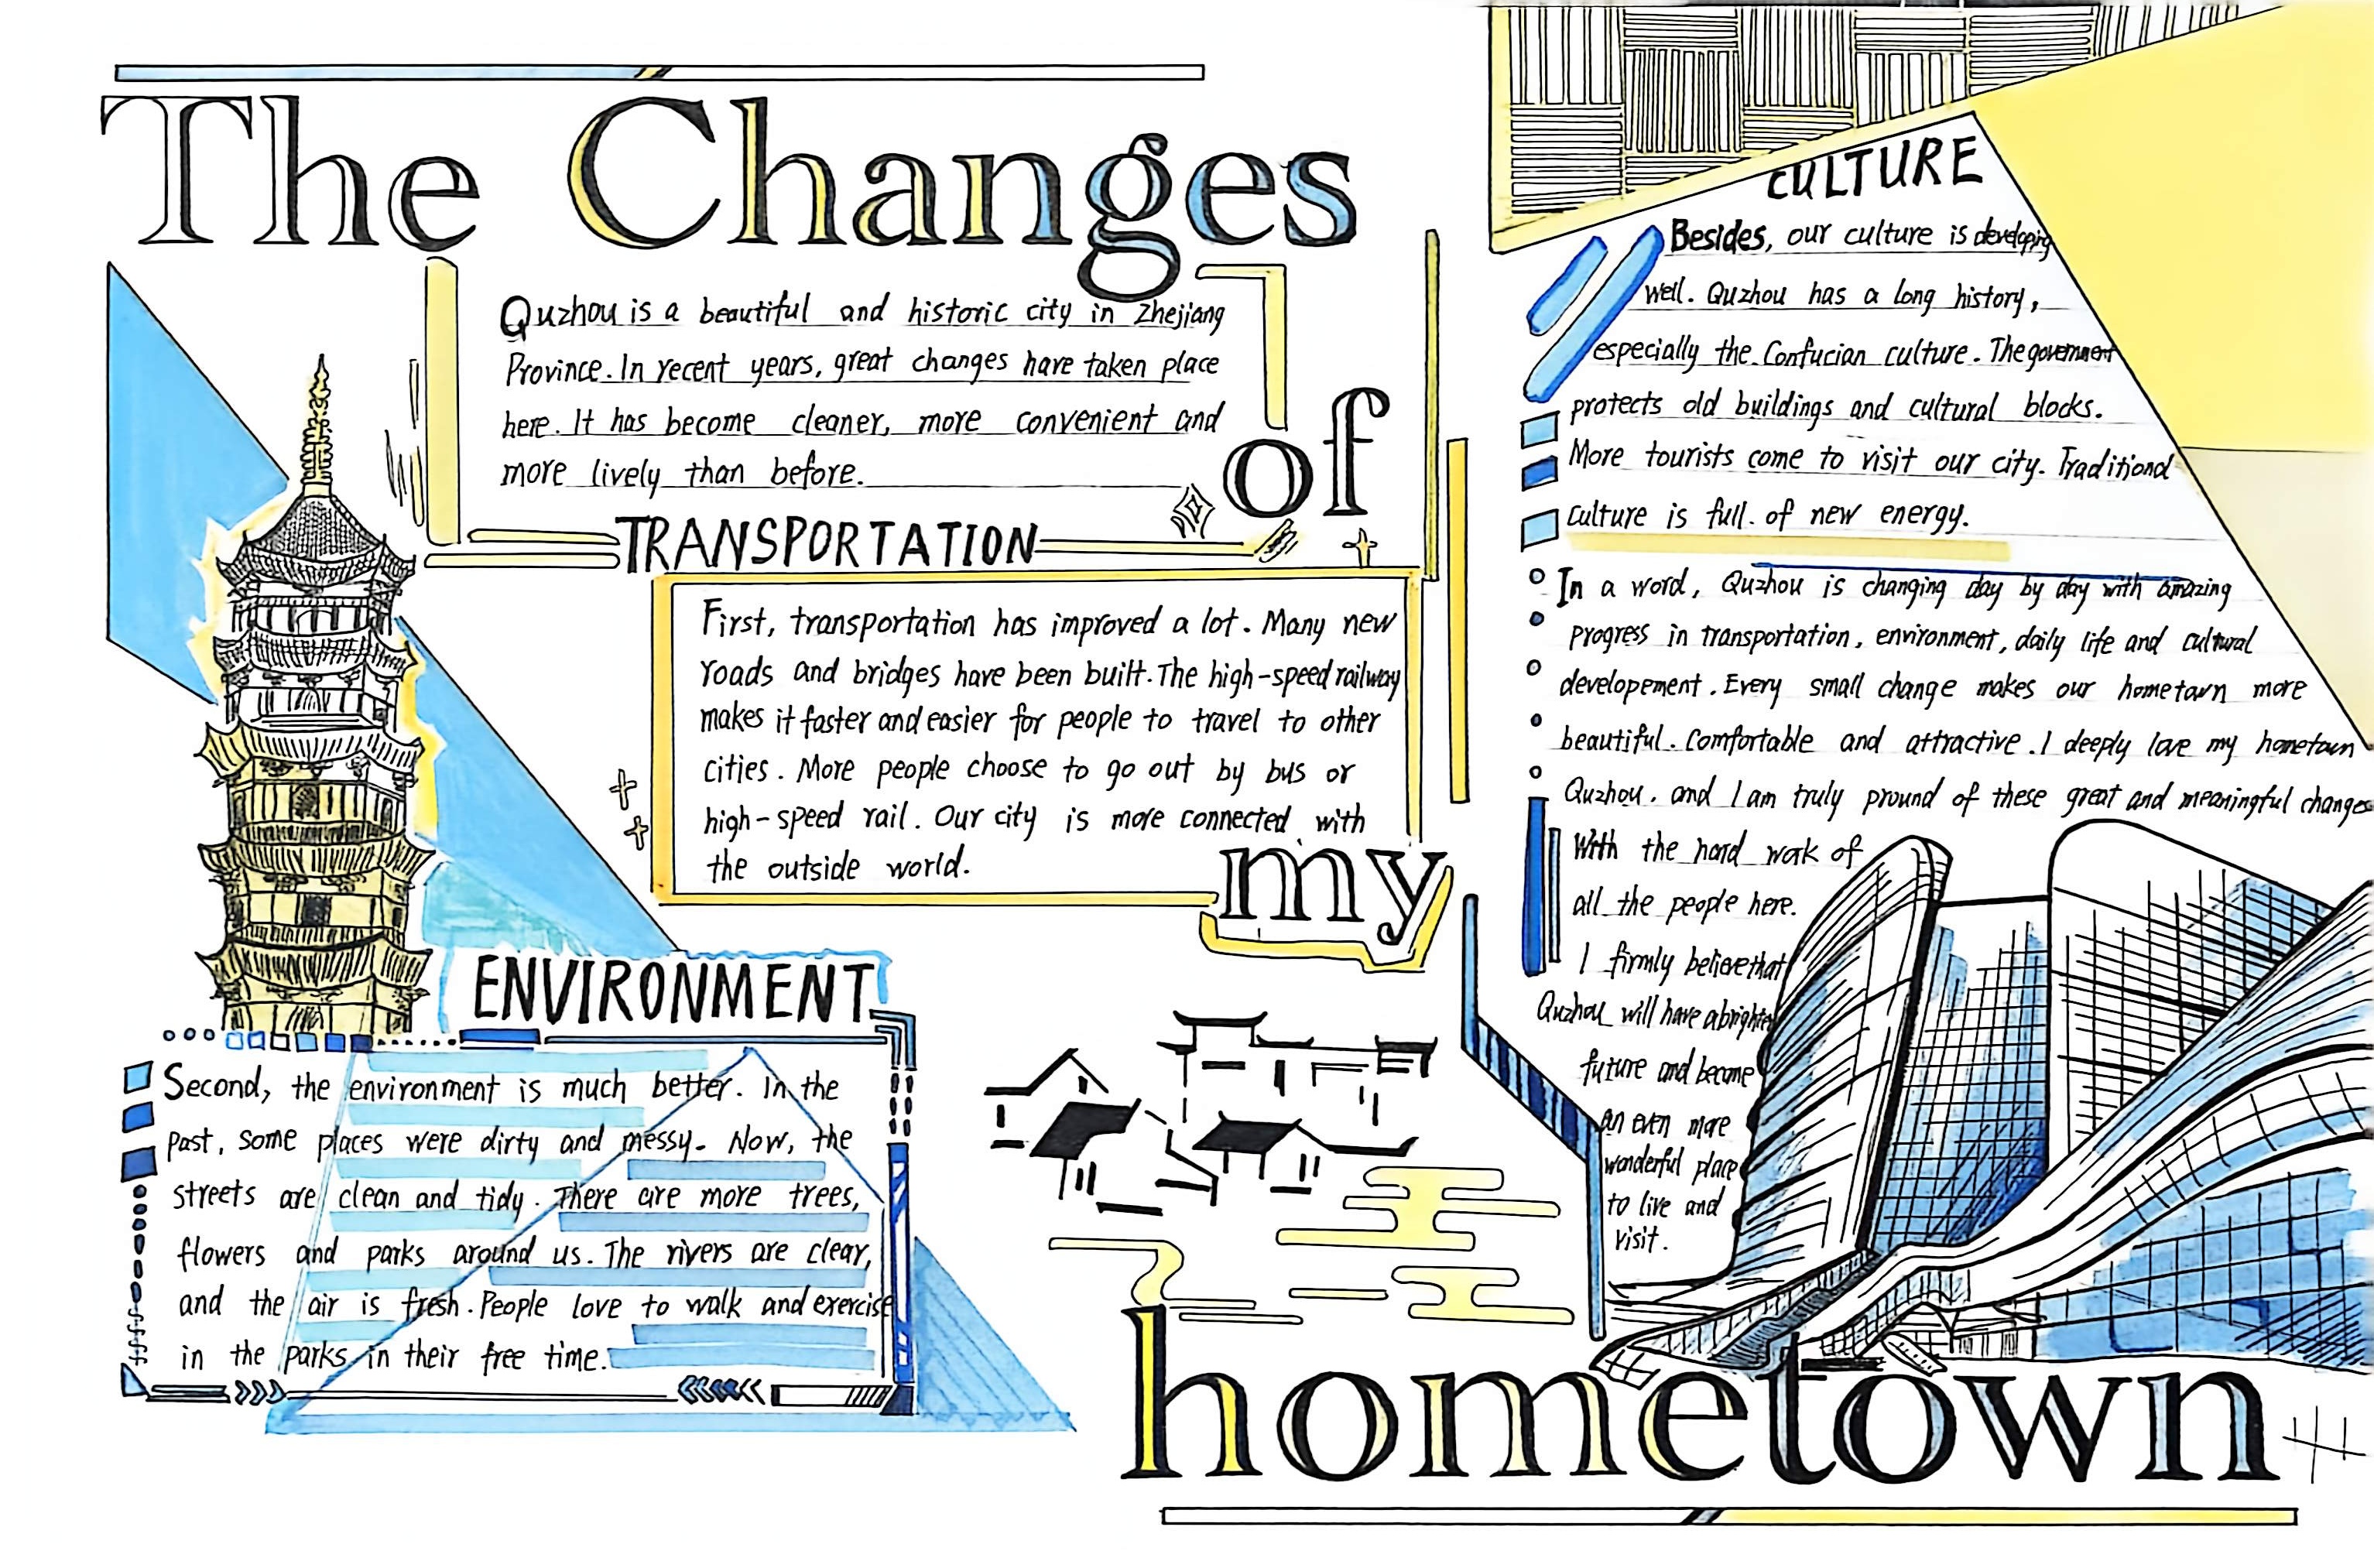 The Changes
of
my
hometown
Quzhou is a beautiful and historic city in Zhejiang
Province. In recent years, great changes have taken place
here. It has become cleaner, more convenient and
more lively than before.
TRANSPORTATION
First, transportation has improved a lot. Many new
roads and bridges have been built. The high-speed railway
makes it faster and easier for people to travel to other
cities. More people choose to go out by bus or
high-speed rail. Our city is more connected with
the outside world.
ENVIRONMENT
Second, the environment is much better. In the
past, some places were dirty and messy. Now, the
streets are clean and tidy. There are more trees,
flowers and parks around us. The rivers are clear,
and the air is fresh. People love to walk and exercise
in the parks in their free time.
CULTURE
Besides, our culture is developing
well. Quzhou has a long history,
especially the Confucian culture. The government
protects old buildings and cultural blocks.
More tourists come to visit our city. Traditional
culture is full of new energy.
In a word, Quzhou is changing day by day with amazing
progress in transportation, environment, daily life and cultural
developement. Every small change makes our hometown more
beautiful. Comfortable and attractive. I deeply love my hometown
Quzhou. and I am truly pround of these great and meaningful changes
With the hard work of
all the people here.
I firmly believe that
Quzhou will have a brighter
future and become
an even more
wonderful place
to live and
visit.